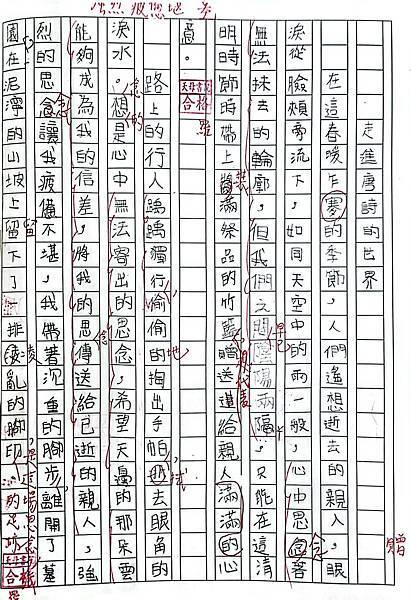 走進唐詩的世界
在這春暖乍寒的季節，人們遙想逝去的親人，眼
淚從臉頰旁流下，如同天空中的雨一般，心中思念著
無法抹去的輪廓，但我們之間陰陽兩隔，只能在這清
明時節時帶上裝滿祭品的竹籃贈送道給親人滿滿的心
意。
路上的行人踽踽獨行偷偷的掏出手帕逝去眼角的
淚水。想是心中無法寄出的思念，希望天邊的那朵雲
能夠成為我的信差，將我的思傳送給已逝的親人，強
烈的思念讓我疲憊不堪，我帶著沉重的腳步離開了墓
園在泥濘的山坡上留下了一排凌亂的腳印。